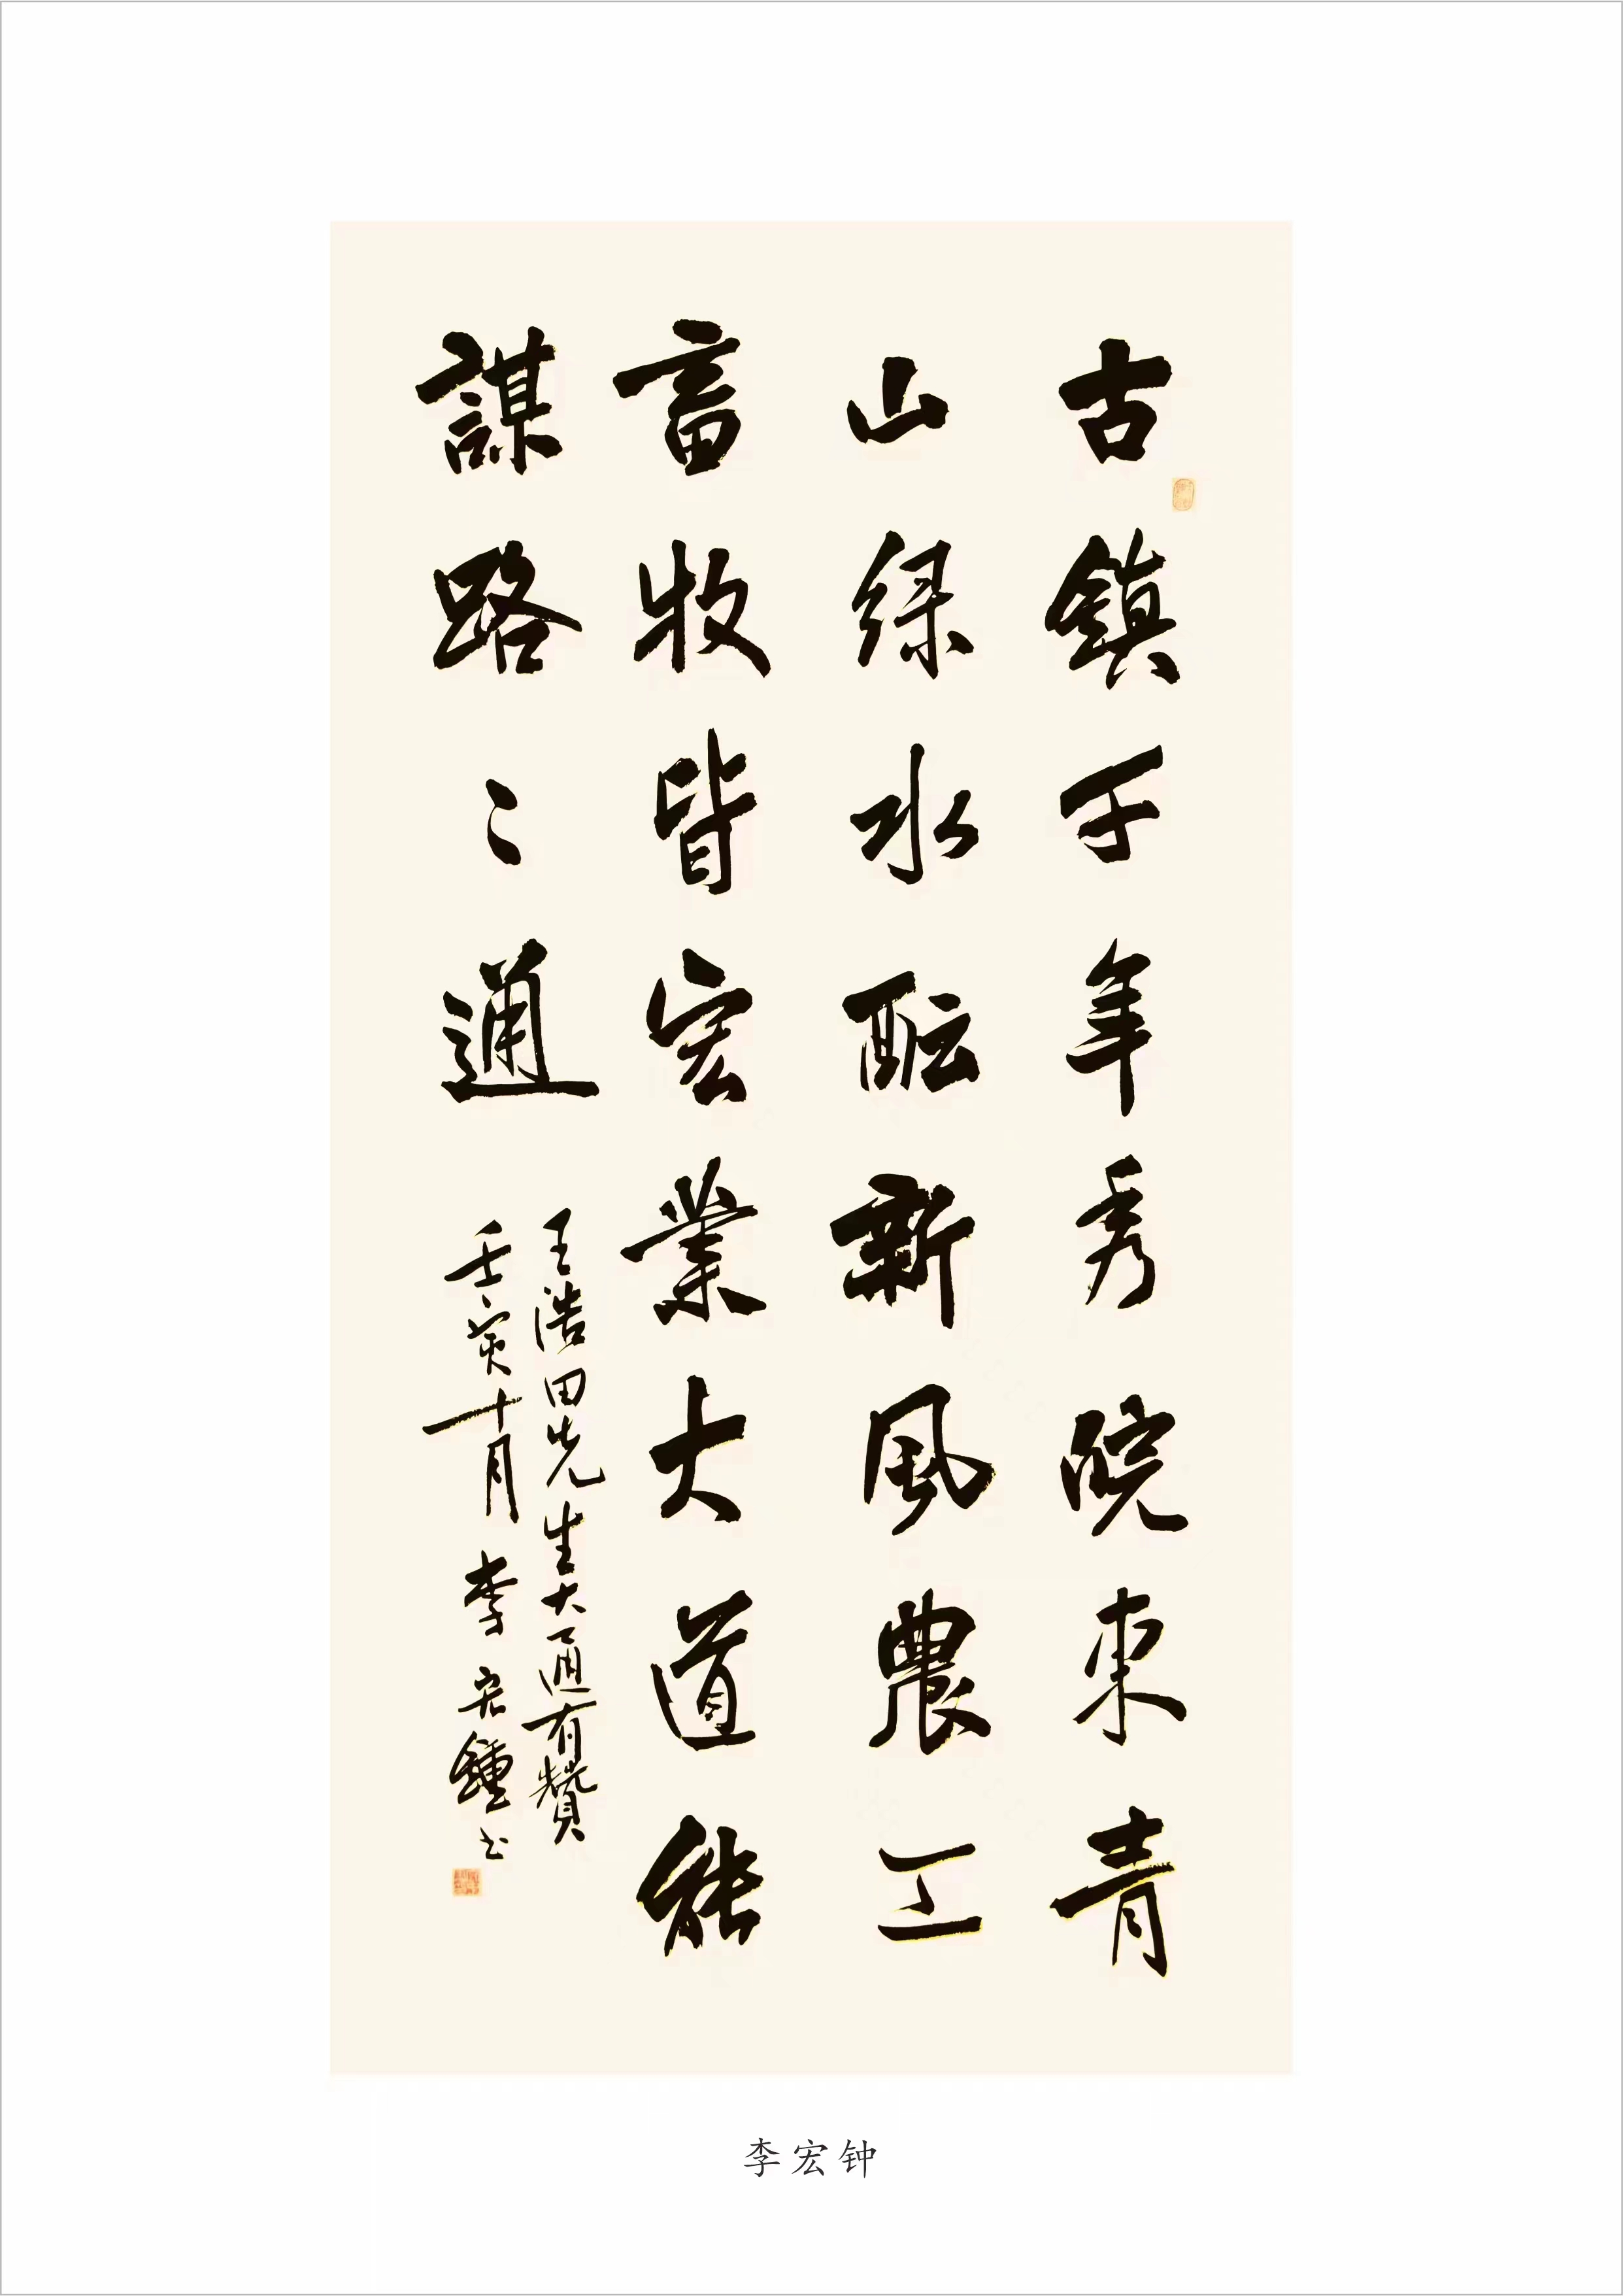 古鎮千年秀皖東青
山绿水酝新風農工
畜牧皆宏業大道能
謀路〻通
王浩田先生大通有贊
壬寅十月李宏鍾书
李宏钟